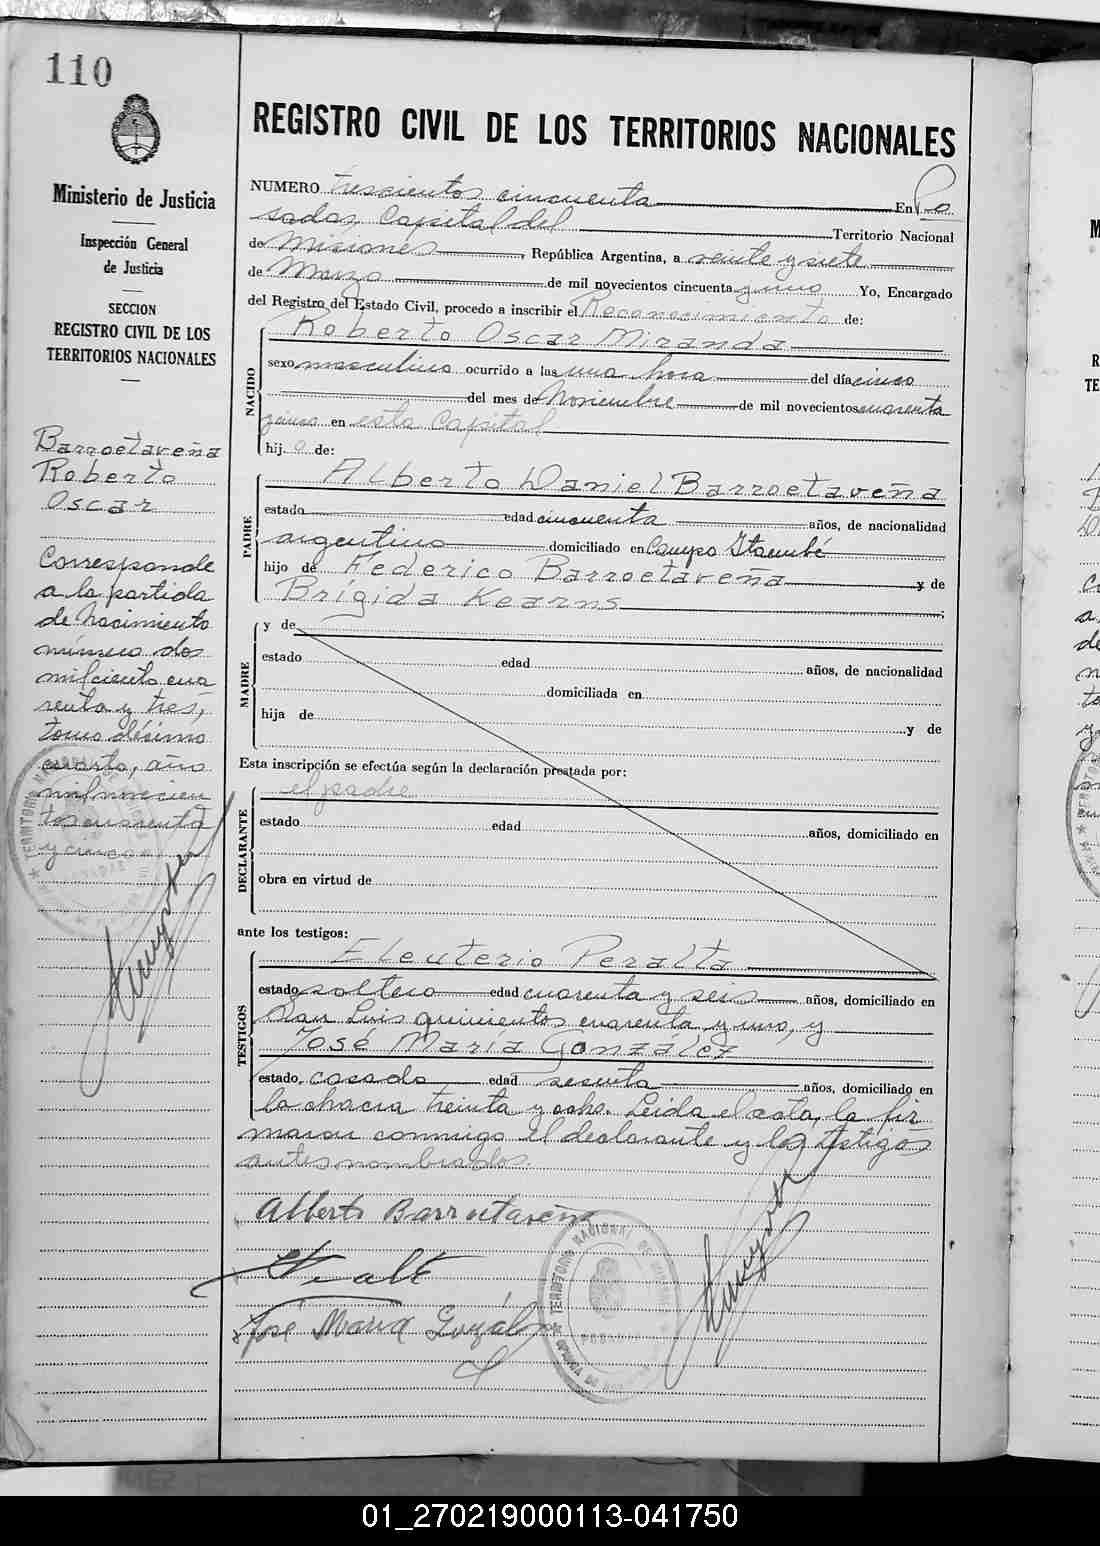 110
Ministerio de Justicia
Inspección General
de Justicia
SECCION
REGISTRO CIVIL DE LOS
TERRITORIOS NACIONALES
Barroetaveña
Roberto
Oscar
Corresponde
a la partida
de Nacimiento
número dos
mil ciento cua
renta y tres,
tomo décimo
cuarto, año
mil novecien
tos cuarenta
y cinco
REGISTRO CIVIL DE LOS TERRITORIOS NACIONALES
NUMERO trescientos cincuenta En Po
sadas, Capital del Territorio Nacional
de Misiones, República Argentina, a veinte y siete
de Marzo de mil novecientos cincuenta y uno Yo, Encargado
del Registro del Estado Civil, procedo a inscribir el Reconocimiento de:
NACIDO
Roberto Oscar Miranda
sexo masculino ocurrido a las una hora del día cinco
del mes de Noviembre de mil novecientos cuarenta
y cinco en esta Capital
hijo de:
PADRE
Alberto Daniel Barroetaveña
estado edad cincuenta años, de nacionalidad
argentino domiciliado en Campo Itaembé
hijo de Federico Barroetaveña y de
Brígida Kearns
MADRE
y de
estado edad años, de nacionalidad
domiciliada en
hija de y de
Esta inscripción se efectúa según la declaración prestada por:
DECLARANTE
el padre
estado edad años, domiciliado en
obra en virtud de
ante los testigos:
TESTIGOS
Eleuterio Peralta
estado soltero edad cuarenta y seis años, domiciliado en
San Luis quinientos cuarenta y uno, y
José María González
estado, casado edad sesenta años, domiciliado en
la chacra treinta y ocho. Leida el acta, la fir
maron conmigo el declarante y los testigos
antes nombrados.
Alberto Barroetaveña
José María Gonzál
TERRITORIO NACIONAL DE MISIONES
POSADAS
01_270219000113-041750